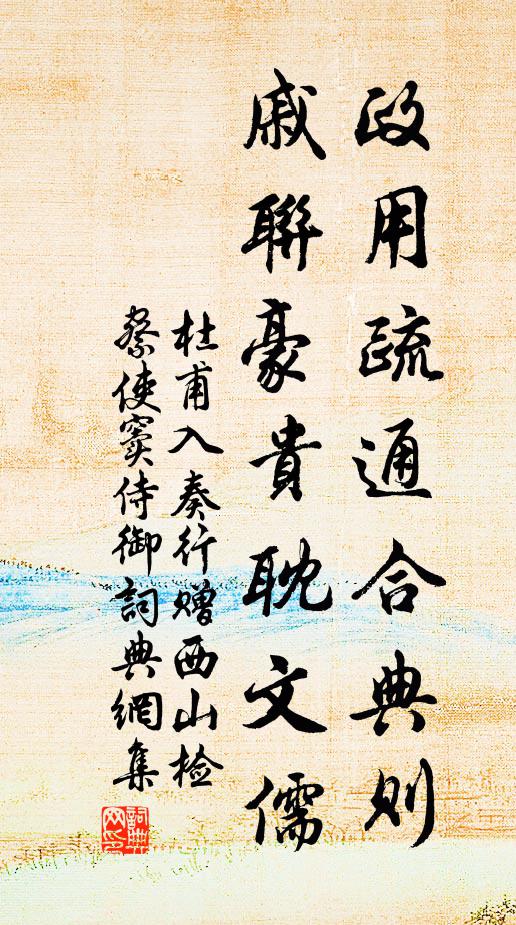 政用疏通合典则
戚聯豪貴耽文儒
杜甫入奏行赠西山检
察使窦侍御詞典網集
詞典网印